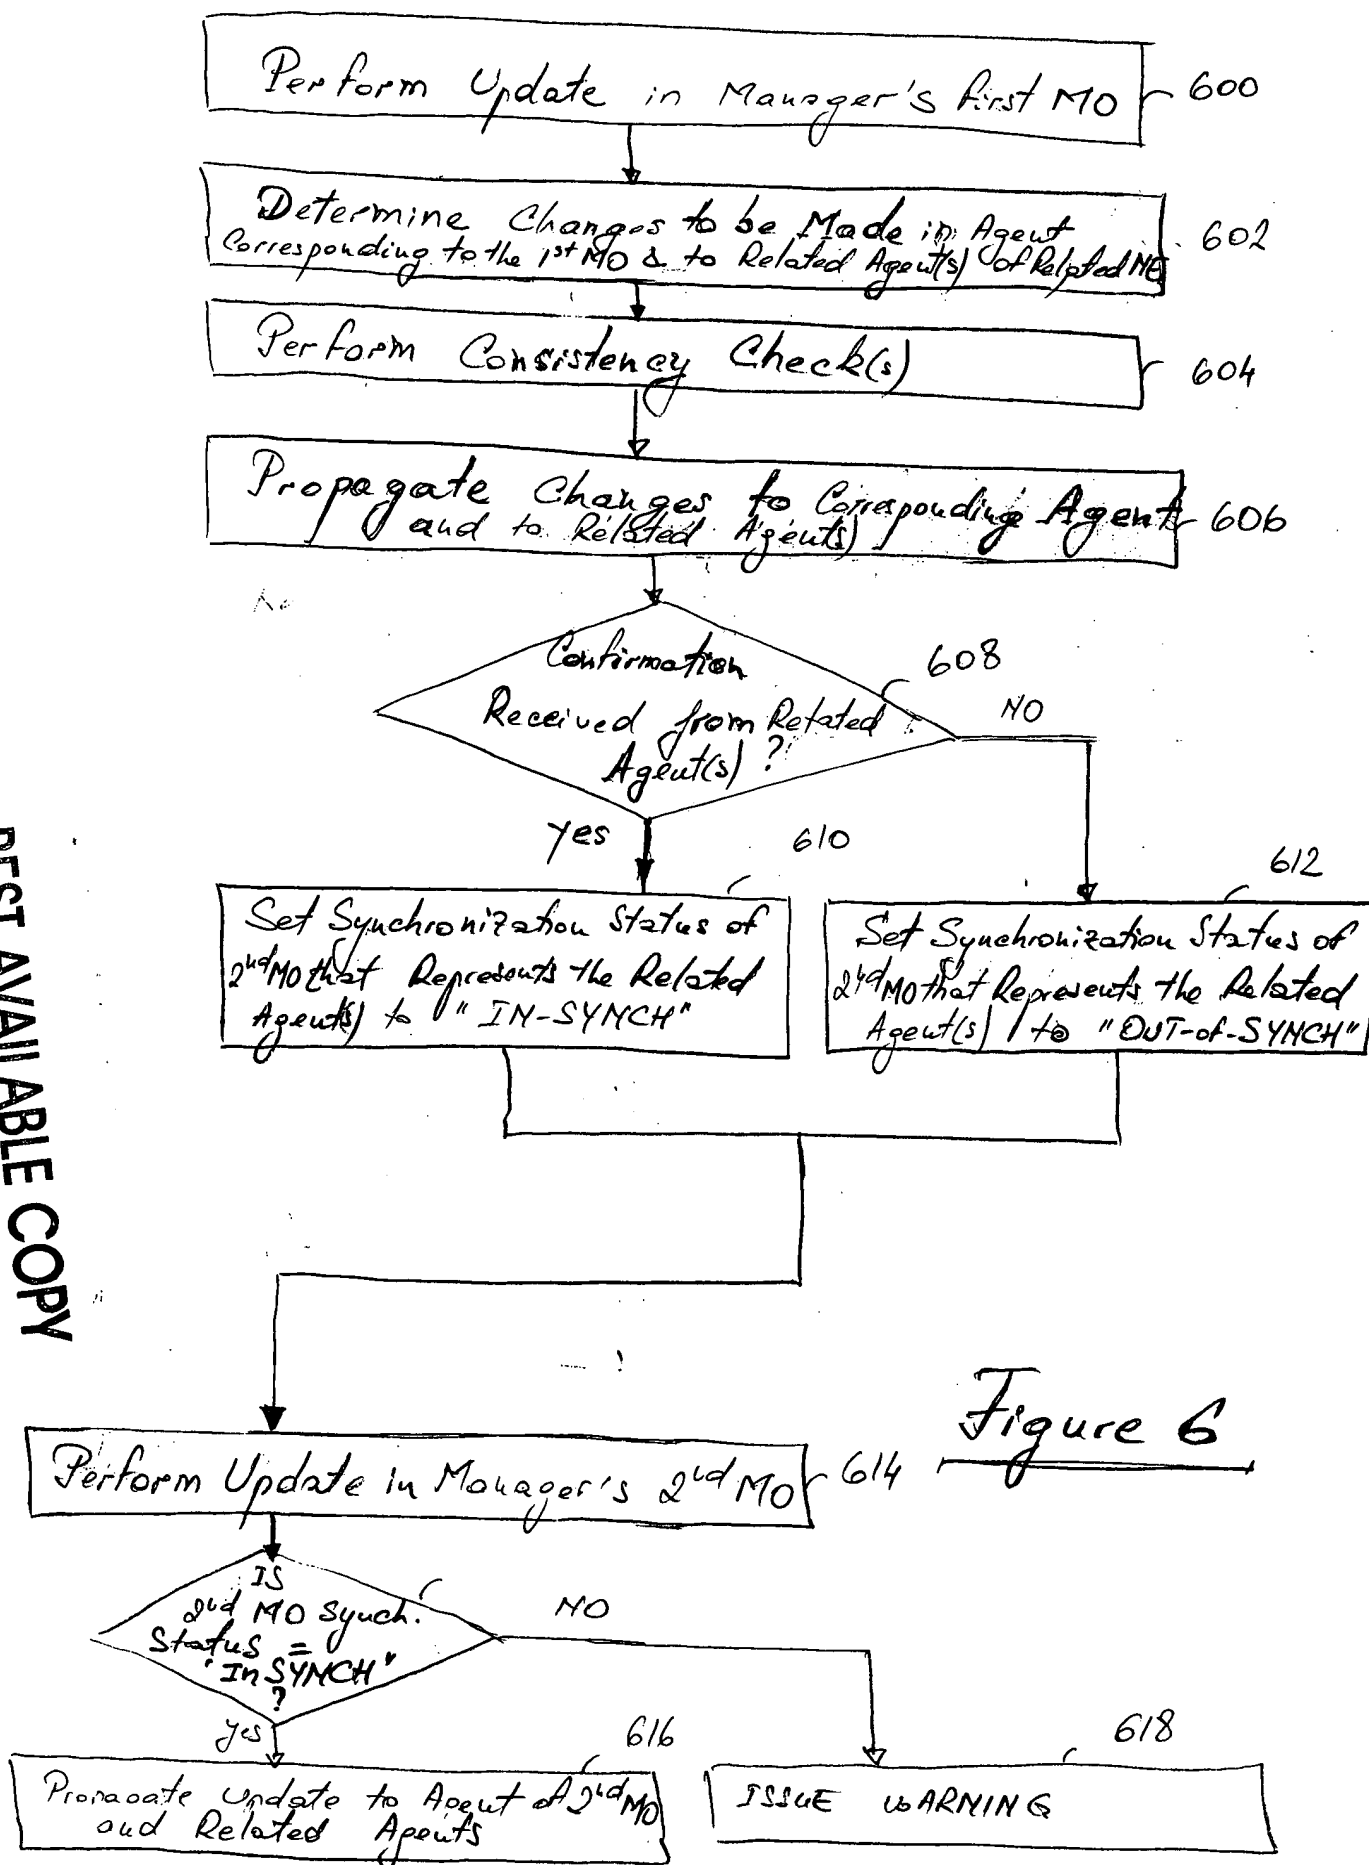 Perform Update in Manager's first MO
600
Determine Changes to be Made in Agent
Corresponding to the 1st MO & to Related Agent(s) of Related NE
602
Perform Consistency Check(s)
604
Propagate Changes to Corresponding Agent
and to Related Agent(s)
606
Confirmation
Received from Related
Agent(s) ?
608
NO
yes
610
612
Set Synchronization Status of
2nd MO that Represents the Related
Agent(s) to "IN-SYNCH"
Set Synchronization Status of
2nd MO that Represents the Related
Agent(s) to "OUT-of-SYNCH"
BEST AVAILABLE COPY
Figure 6
Perform Update in Manager's 2nd MO
614
IS
2nd MO Synch.
Status =
"In SYNCH"
?
NO
yes
616
618
Propagate Update to Agent of 2nd MO
and Related Agents
ISSUE WARNING